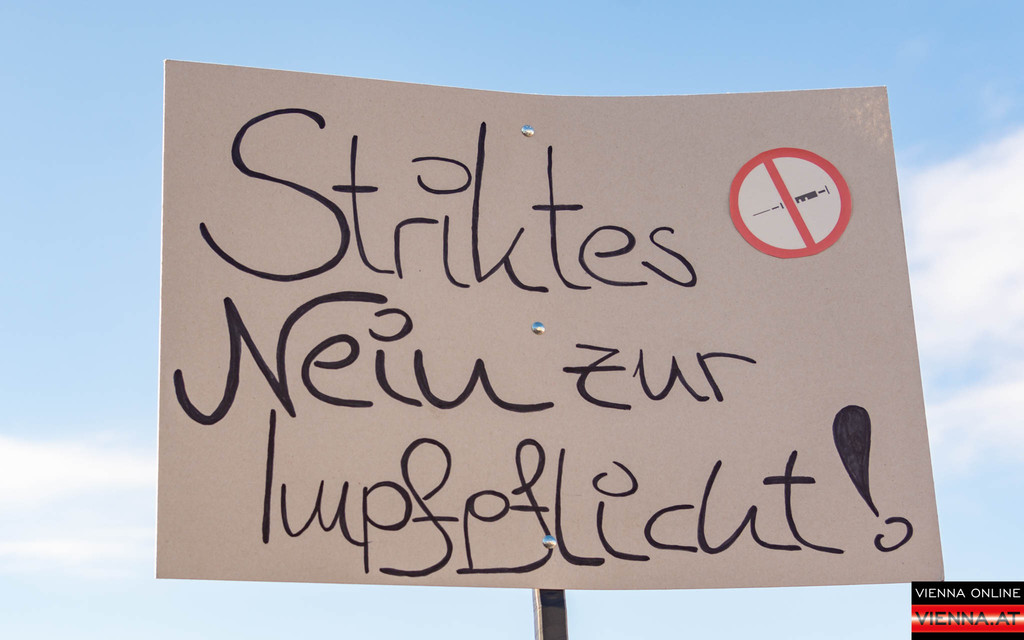 Striktes
Nein zur
Impfpflicht!
VIENNA ONLINE
VIENNA.AT